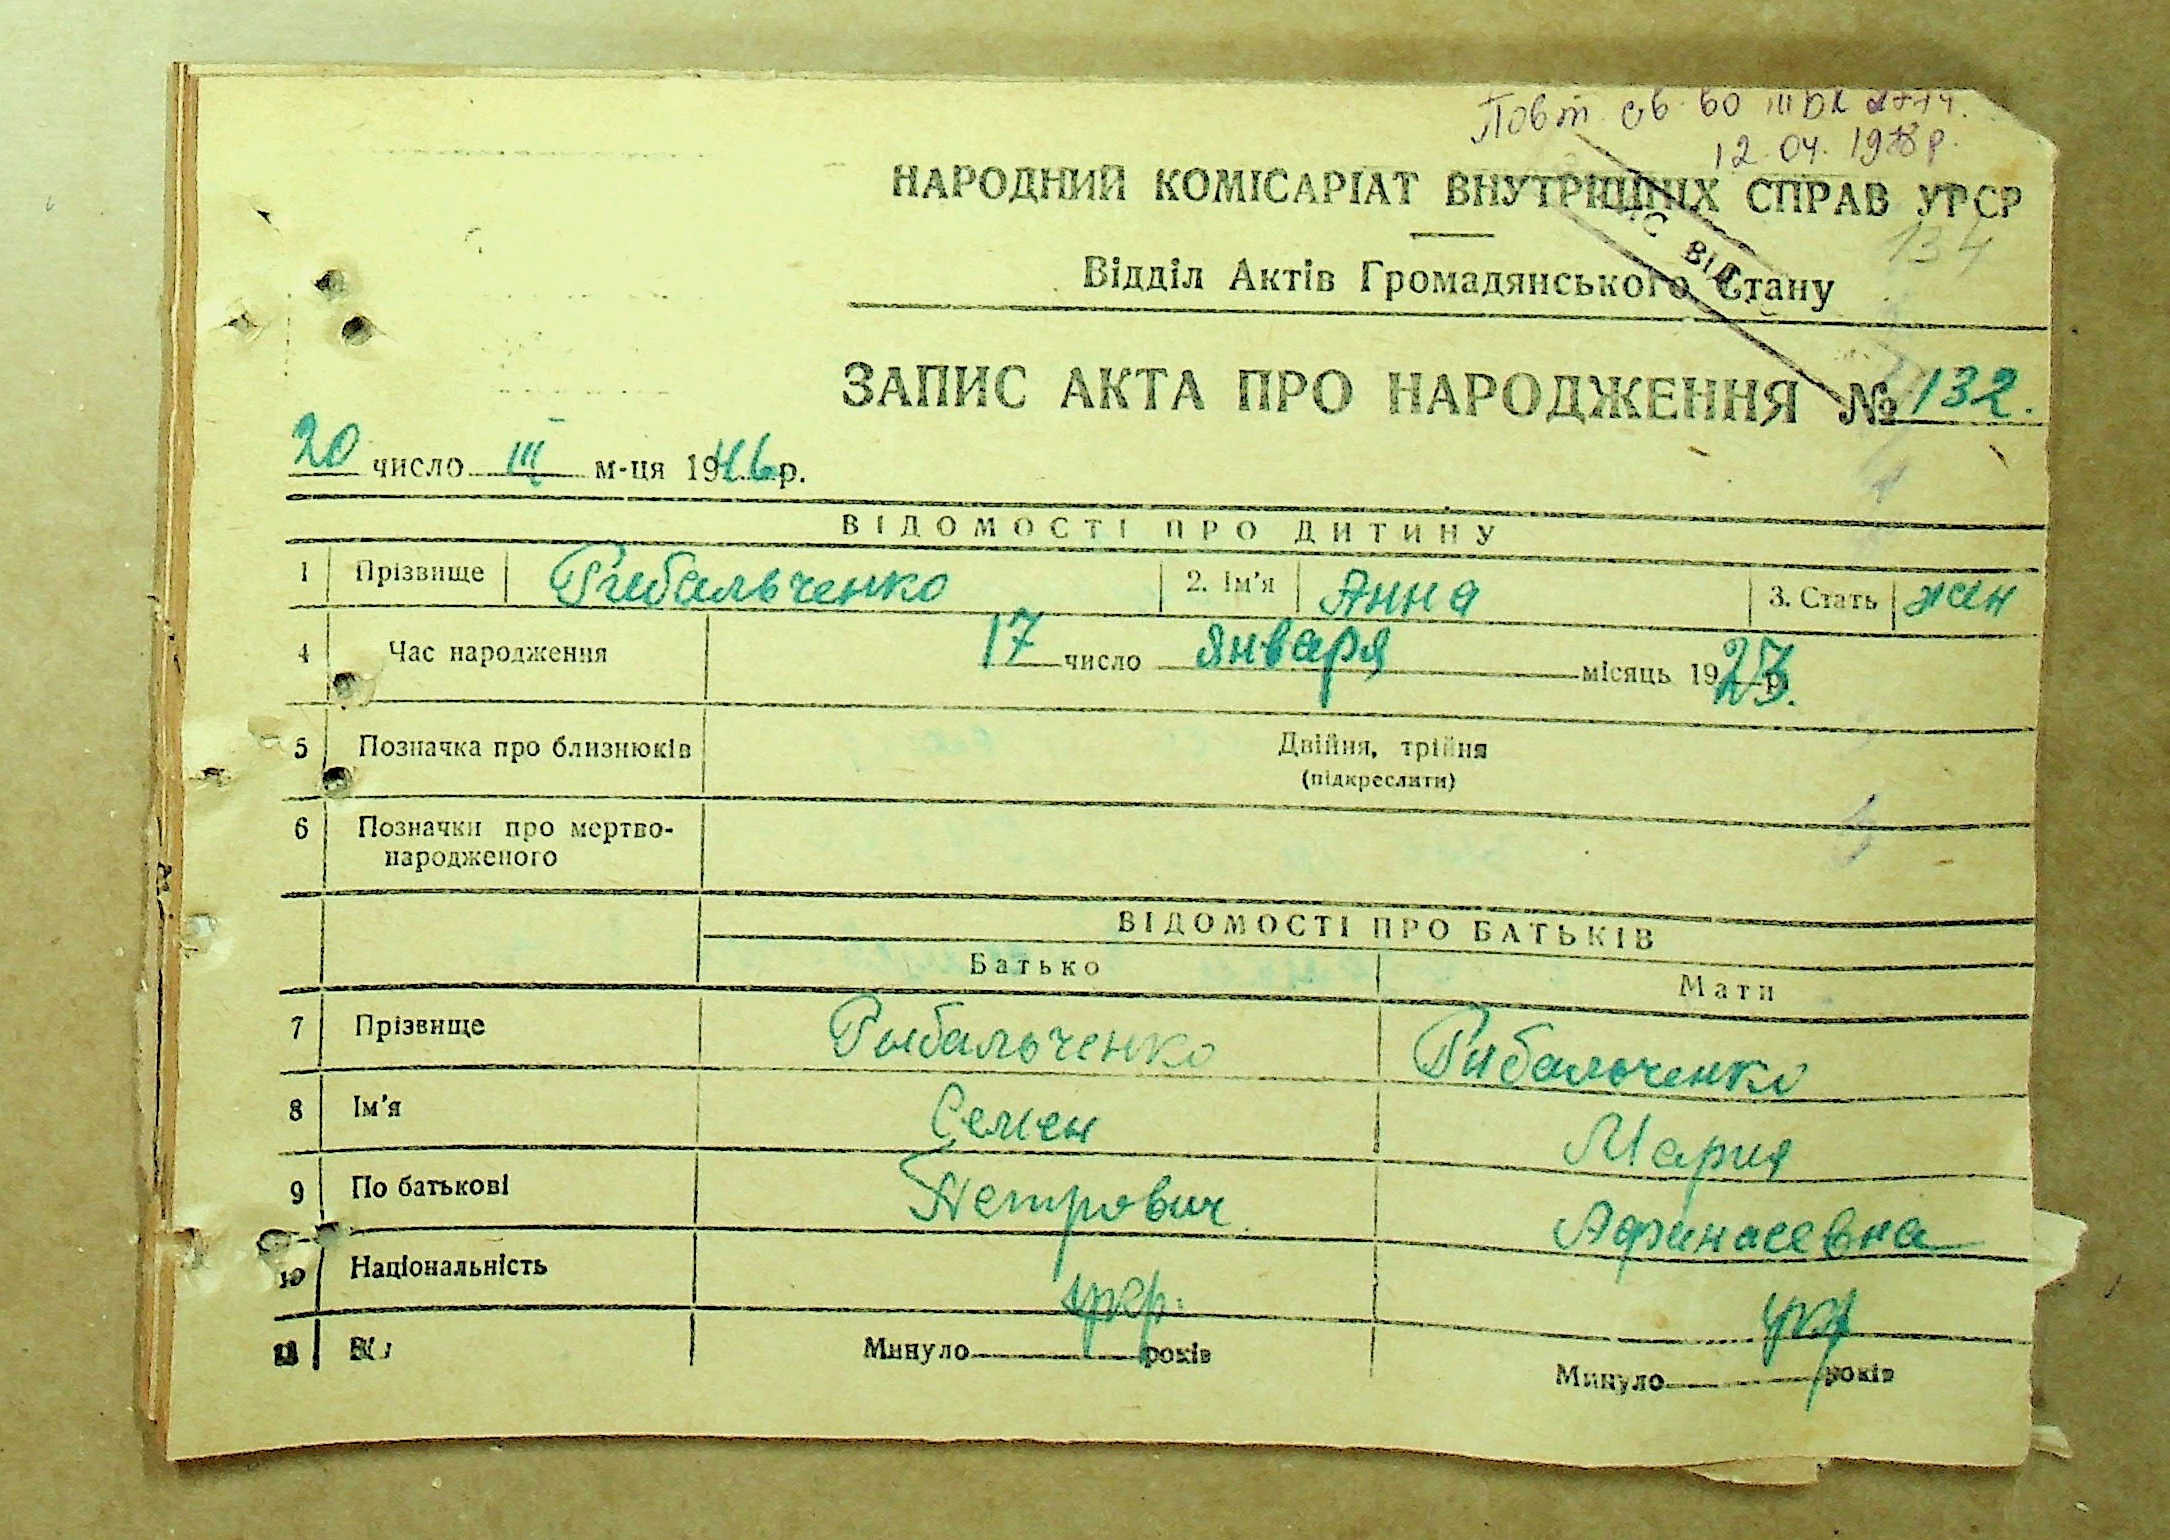 Повт. св. во III БК
12.04.1978 р.
НАРОДНИЙ КОМІСАРІАТ ВНУТРІШНІХ СПРАВ УРСР
134
Відділ Актів Громадянського Стану
ЗАПИС АКТА ПРО НАРОДЖЕННЯ № 132.
20 число III м-ця 1946 р.
ВІДОМОСТІ ПРО ДИТИНУ
1 Прізвище Рибальченко 2. Ім'я Анна 3. Стать жен
4 Час народження 17 число января місяць 1923 р.
5 Позначка про близнюків Двійня, трійня
(підкреслити)
6 Позначки про мертво-
народженого
ВІДОМОСТІ ПРО БАТЬКІВ
Батько Мати
7 Прізвище Рыбальченко Рибальченко
8 Ім'я Семен Мария
9 По батькові Петрович Афанасевна
10 Національність укр. укр
11 Минуло років Минуло років